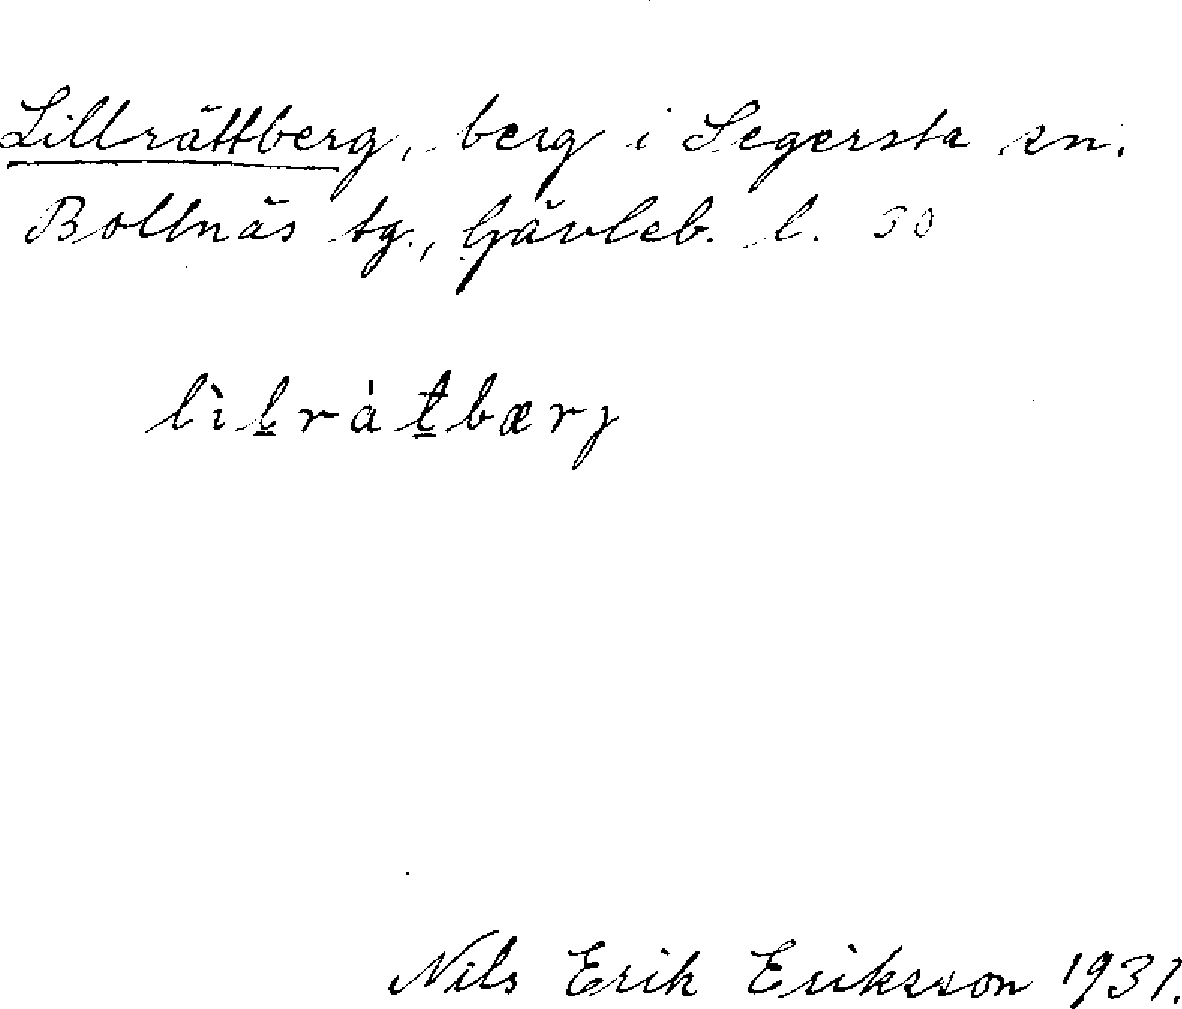 Lillrättberg, berg i Segersta sn.
Bollnäs tg., Gävleb. l. 30
lìl̲rȧt̲bærj
Nils Erik Eriksson 1931.